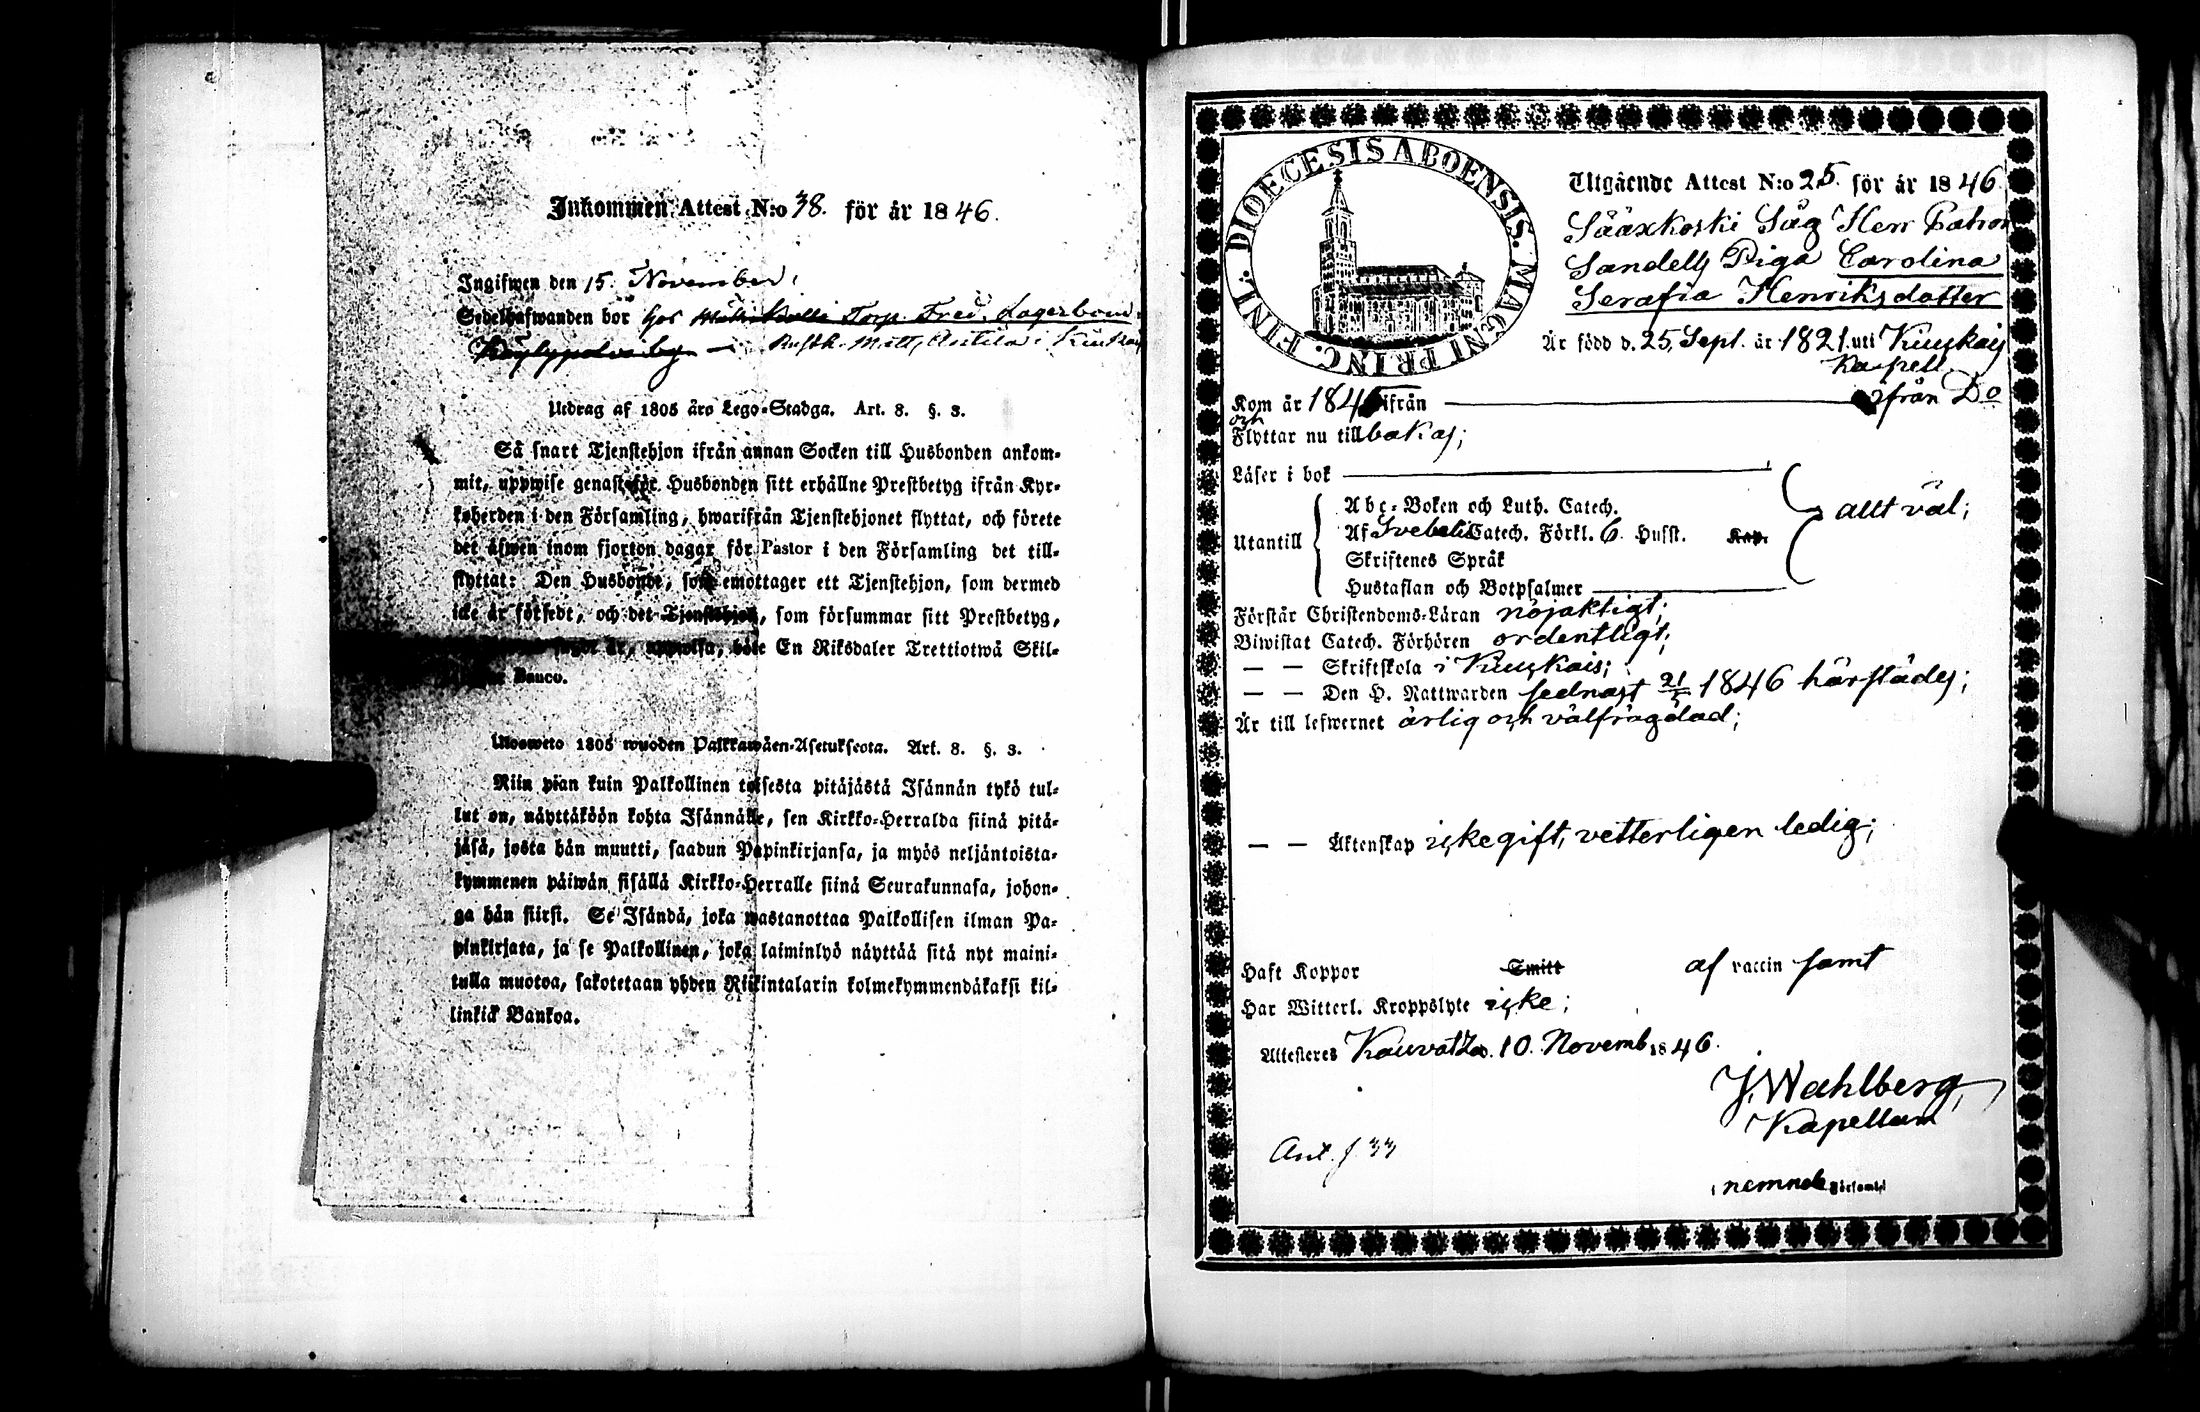 Inkommen Attest N:o 38. för år 1846.
Ingifwen den 15. November,
Sedelhafwanden bor hos Torp. Fred. Lagerbom
Rusth. Matts Anttila i
Utdrag af 1805 års Lego-Stadga. Art. 8. §. 3.
Så snart Tjenstehjon ifrån annan Socken till Husbonden ankom-
mit, uppwise genast för Husbonden sitt erhållne Prestbetyg ifrån Kyr-
koherden i den Församling, hwarifrån Tjenstehjonet flyttat, och förete
det äfwen inom fjorton dagar för Pastor i den Församling det till-
flyttat: Den Husbonde, som emottager ett Tjenstehjon, som dermed
icke är försedt, och det Tjenstehjon, som försummar sitt Prestbetyg,
sagdt är, uppwisa, böte En Riksdaler Trettiotwå Skil-
Banco.
Ulosweto 1805 wuoden Palkkawäen-Asetuksesta. Art. 8. §. 3.
Niin pian kuin Palkollinen toisesta pitäjästä Isännän tykö tul-
lut on, näyttäköön kohta Isännälle, sen Kirkko-Herralda siinä pitä-
jäsä, josta hän muutti, saadun Papinkirjansa, ja myös neljäntoista-
kymmenen päiwän sisällä Kirkko-Herralle siinä Seurakunnasa, johon-
ga hän siirsi. Se Isändä, joka wastanottaa Palkollisen ilman Pa-
pinkirjata, ja se Palkollinen, joka laiminlyö näyttää sitä nyt maini-
tulla muotoa, sakotetaan yhden Riikintalarin kolmekymmendäkaksi kil-
linkiä Bankoa.
DIOECESIS ABOENSIS. MAGNI PRINC. FINL.
Utgående Attest N:o 25. för år 1846.
Sääxkoski Såg Herr Patron
Sandells Piga Carolina
Serafia Henriksdotter
Är född d. 25, Sept. år 1821. uti Kiukais
Kapell
Kom år 184 ifrån ifrån Do
och
Flyttar nu tillbakas;
Läser i bok
Utantill
Abc-Boken och Luth. Catech.
Af Svebelii Catech. Förkl. 6. Hufst. Kap.
Skriftenes Språk
Hustaflan och Botpsalmer
allt väl;
Förstår Christendoms-Läran nöjaktigt;
Biwistat Catech. Förhören ordentligt;
— — Skriftskola i Kiukais;
— — Den H. Nattwarden sednast 21/5 1846 härstädes;
Är till lefwernet ärlig och välfrägdad;
— — Äktenskap icke gift, vetterligen ledig;
Haft Koppor Smitt af vaccin samt
Har Witterl. Kroppslyte icke;
Attesteres Kauvatsa d. 10. Novemb. 1846.
J. Wahlberg,
Kapellan
i nemnde Församl.
Ant. f. 33